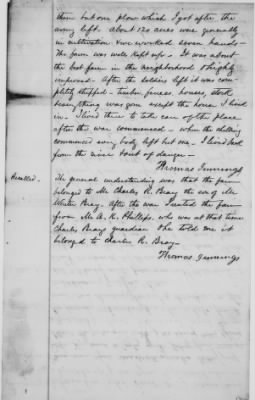 them but one plow which I got after the
army left. About 120 acres were generally
in cultivation & we worked seven hands—
The farm was well kept up— It was about
the best farm in the neighborhood & highly
improved— After the soldiers left it was com-
pletely stripped— timber fences, houses, stock
everything was gone except the house I lived
in— I lived there to take care of the place
after the war commenced— when the shelling
commenced every body left but me— I lived back
from the river & out of danger—
Thomas Jennings
Recalled.
The general understanding was that the farm
belonged to Mr Charles R. Bray the son of Mr
Winter Bray. After the war I rented the farm
from Mr A. K. Phillips, who was at that time
Charles Brays guardian & he told me it
belonged to Charles R. Bray—
Thomas Jennings